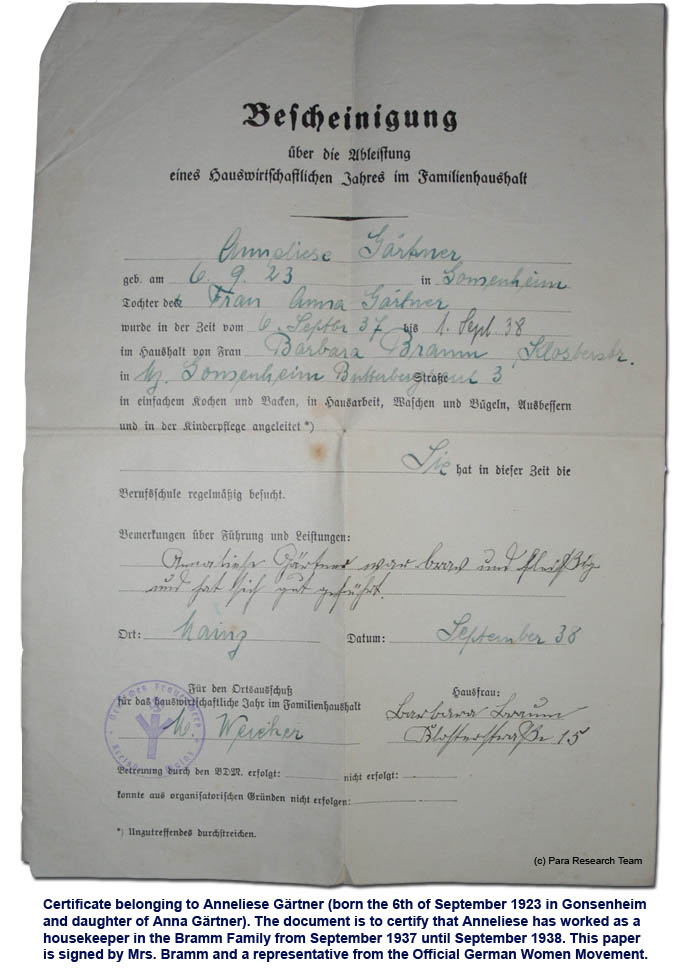 Bescheinigung
über die Ableistung
eines Hauswirtschaftlichen Jahres im Familienhaushalt
Anneliese Gärtner
geb. am 6. 9. 23 in Gonsenheim
Tochter des Frau Anna Gärtner
wurde in der Zeit vom 6. Septbr 37 bis 1. Sept 38
im Haushalt von Frau Barbara Bramm Klosterstr.
in Mz. Gonsenheim Straße 3
in einfachem Kochen und Backen, in Hausarbeit, Waschen und Bügeln, Ausbessern
und in der Kinderpflege angeleitet *)
Sie hat in dieser Zeit die
Berufsschule regelmäßig besucht.
Bemerkungen über Führung und Leistungen:
Anneliese Gärtner war brav und fleißig
und hat sich gut geführt.
Ort: Mainz Datum: September 38
Für den Ortsausschuß
für das hauswirtschaftliche Jahr im Familienhaushalt
Hausfrau:
Deutsches Frauenwerk
Mainz
M. Weicher
Barbara Bramm
Klosterstraße 15
Betreuung durch den BDM. erfolgt: nicht erfolgt:
konnte aus organisatorischen Gründen nicht erfolgen:
*) Unzutreffendes durchstreichen.
(c) Para Research Team
Certificate belonging to Anneliese Gärtner (born the 6th of September 1923 in Gonsenheim
and daughter of Anna Gärtner). The document is to certify that Anneliese has worked as a
housekeeper in the Bramm Family from September 1937 until September 1938. This paper
is signed by Mrs. Bramm and a representative from the Official German Women Movement.